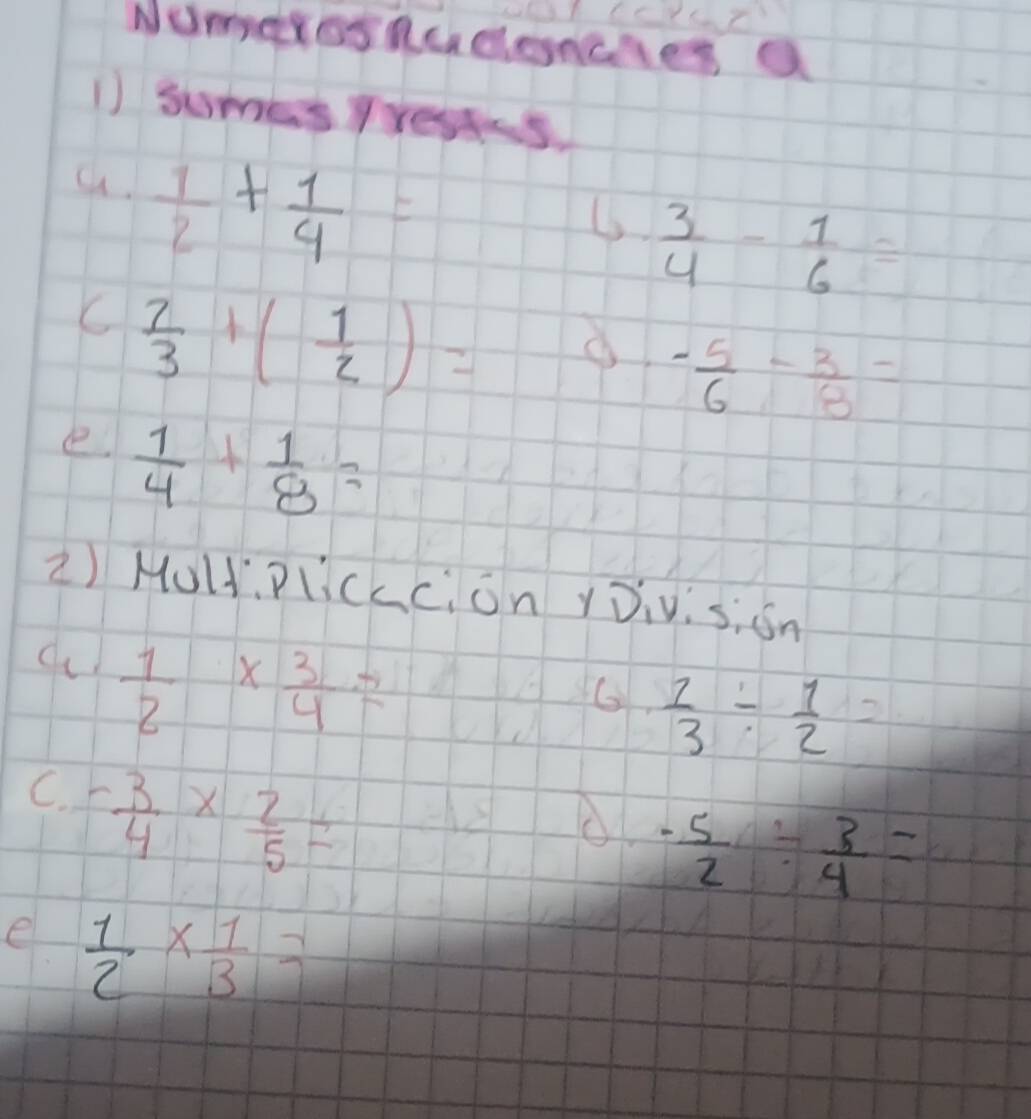 Numeros Racionales Q
1) Sumas y restas.
a. 1/2 + 1/4 =
b. 3/4 - 1/6 =
c 2/3 + ( 1/2 ) =
d. -5/6 - 3/8 =
e. 1/4 + 1/8 =
2) Multiplicación y División
a. 1/2 x 3/4 =
b. 2/3 ÷ 1/2 =
c. -3/4 x 2/5 =
d. -5/2 ÷ 3/4 =
e 1/2 x 1/3 =